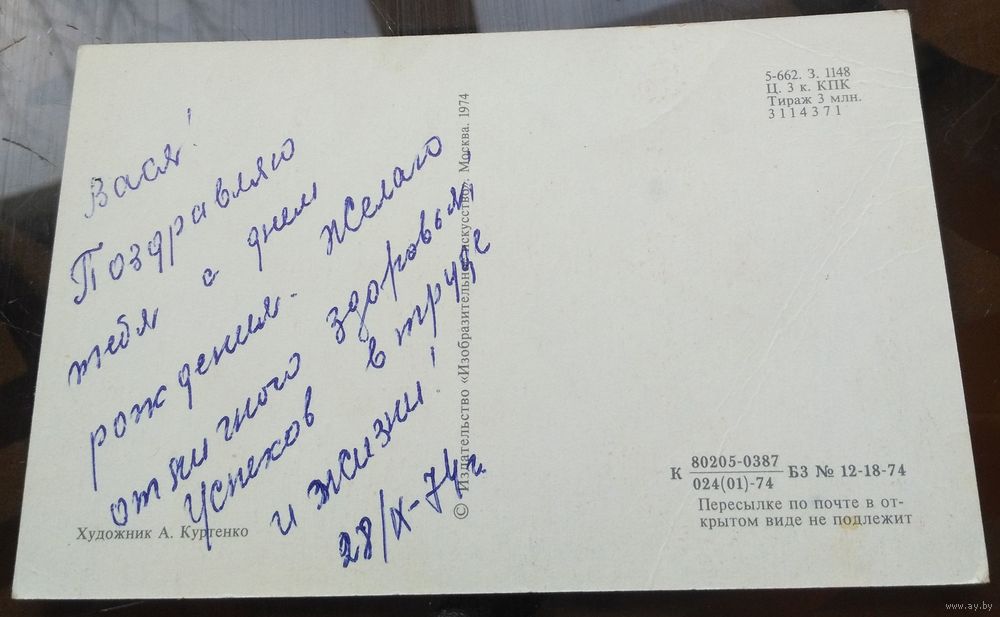 Вася!
Поздравляю
тебя с днем
рождения. Желаю
отличного здоровья,
успехов в труде
и жизни!
28/IX-74г.
Художник А. Куртенко
© Издательство «Изобразительное искусство». Москва. 1974
5-662. З. 1148
Ц. 3 к. КПК
Тираж 3 млн.
3114371
К 80205-0387 БЗ № 12-18-74
024(01)-74
Пересылке по почте в от-
крытом виде не подлежит
www.ay.by